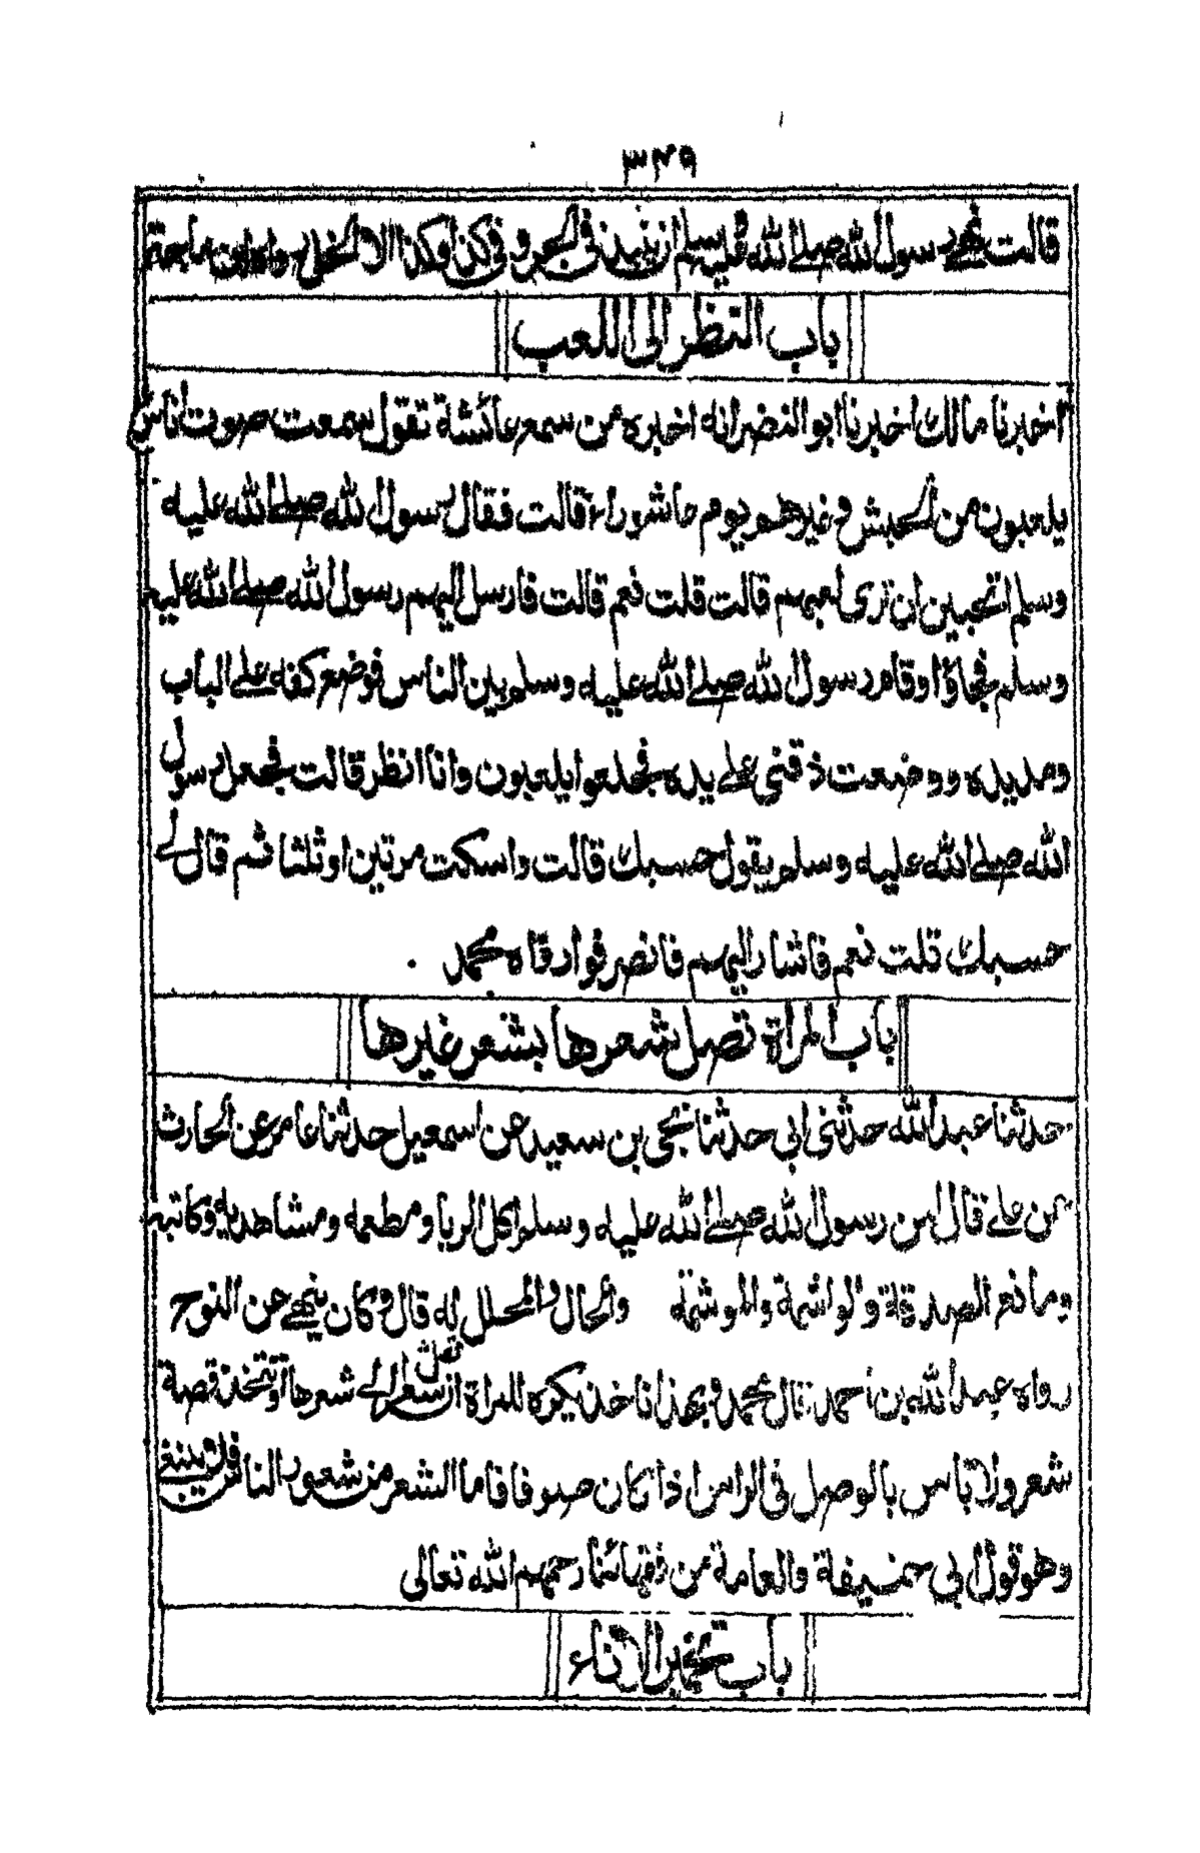 ٣٤٩
قالت نهى رسول الله صلى الله عليه وسلم ان ينبذ فى الجر وفى كذا وكذا الا الخل رواه ابن ماجة
باب النظر الى اللعب
اخبرنا مالك اخبرنا ابو النضر انه اخبره من سمع عائشة تقول سمعت صوت اناس
يلعبون من الحبش وغيرهم يوم عاشوراء قالت فقال رسول الله صلے الله عليه
وسلم اتحبين ان ترى لعبهم قالت قلت نعم قالت فارسل اليهم رسول الله صلے الله عليه
وسلم فجاؤا وقام رسول الله صلے الله عليه وسلم بين الناس فوضع كفه علے الباب
ومد يده ووضعت ذقنى علے يده فجعلوا يلعبون وانا انظر قالت فجعل رسول
الله صلے الله عليه وسلم يقول حسبك قالت واسكت مرتين او ثلثا ثم قال لے
حسبك قلت نعم فاشار اليهم فانصرفوا رواه محمد
باب المراة تصل شعرها بشعر غيرها
حدثنا عبد الله حدثنى ابى حدثنا يحيى بن سعيد عن اسمعيل حدثنا عامر عن الحارث
عن علے قال لعن رسول الله صلے الله عليه وسلم اكل الربا ومطعمه وشاهديه وكاتبه
ومانع الصدقة والواشمة والموشمة والحال والمحلل له قال وكان ينهے عن النوح
رواه عبد الله بن احمد قال محمد وبهذا ناخذ يكره للمراة ان تصل شعرا الے شعرها او تتخذ قصة
شعر ولا باس بالوصل فى الراس اذا كان صوفا فاما الشعر من شعور الناس فلا ينبغے
وهو قول ابى حنيفة والعامة من فقهائنا رحمهم الله تعالى
باب تخمير الاناء